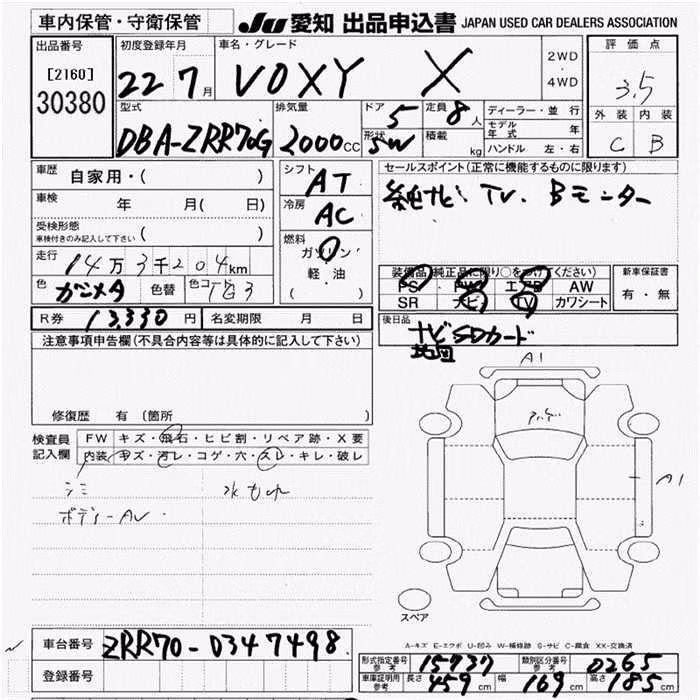 車内保管・守衛保管
JU 愛知 出品申込書 JAPAN USED CAR DEALERS ASSOCIATION
出品番号 [2160] 30380
初度登録年月 22 7月
車名・グレード VOXY X
2WD・4WD
評価点 3.5
外装 内装
C B
型式 DBA-ZRR70G
排気量 2000CC
ドア 5
形状 SW
定員 8人
積載 kg
ディーラー・並行
モデル年式 年
ハンドル 左・右
車歴 自家用・( )
車検 年 月( 日)
受検形態
車検付きのみ記入して下さい ( )
走行 14万3千204km
色 ガンメタ 色替 色コード 1G3
シフト AT
冷房 AC
燃料
ガソリン
軽・油
( )
セールスポイント(正常に機能するものに限ります)
純ナビ TV. Bモニター
装備品(純正品に限り○をつけてください)
PS PW エアB AW
SR ナビ TV カワシート
新車保証書
有・無
R券 13,330円 名変期限 月 日
後日品 ナビSDカード
地図
注意事項申告欄(不具合内容等は具体的に記入して下さい)
修復歴 有 (箇所 )
検査員記入欄
FW キズ・飛石・ヒビ割・リペア跡・X要
内装 キズ・汚レ・コゲ・穴・スレ・キレ・破レ
シミ
ボデーAU
水もれ
A1
A1
スペア
A-キズ E-エクボ U-凹み W-補修跡 S-サビ C-腐食 XX-交換済
車台番号 ZRR70-0347498
登録番号
形式指定番号参考 15737 類別区分番号参考 0265
車庫証明用参考 長さ 459cm 幅 169cm 高さ 185cm